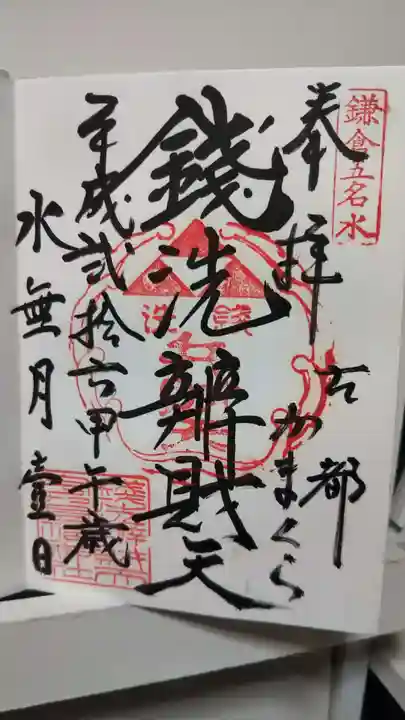 鎌倉五名水
奉拝
古都
かまくら
錢洗辨財天
平成弐拾六甲午歳
水無月壹日
銭洗